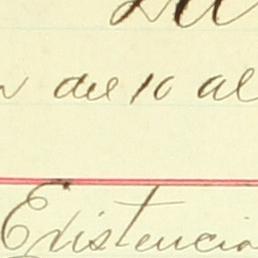 del 10 al
Existencia